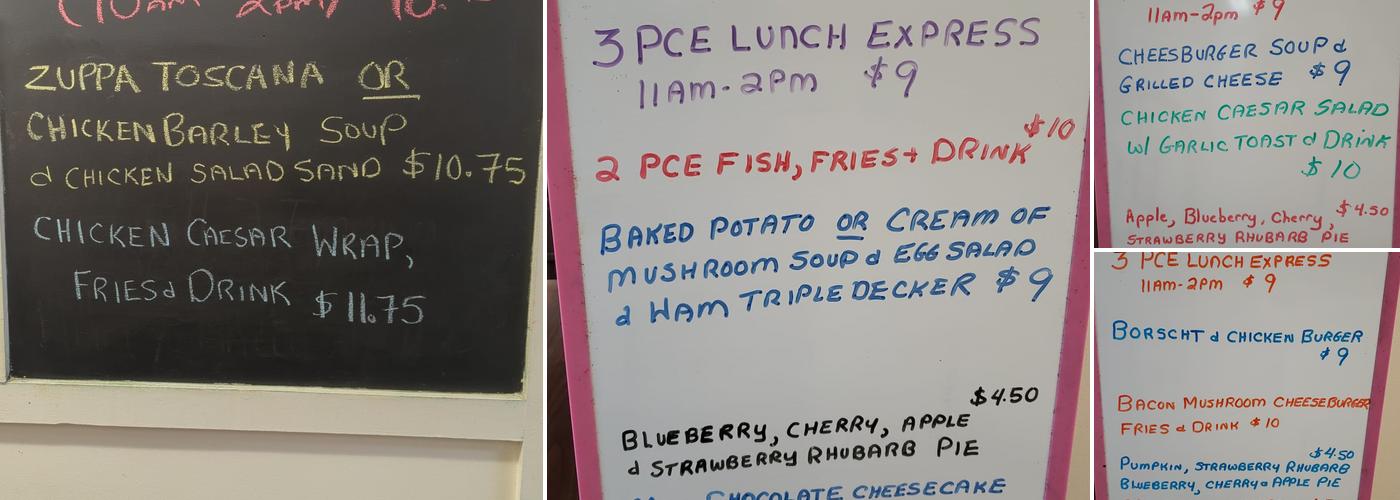 (10am 2pm) 10.
ZUPPA TOSCANA OR
CHICKEN BARLEY SOUP
& CHICKEN SALAD SAND $10.75
CHICKEN CAESAR WRAP,
FRIES & DRINK $11.75
3 PCE LUNCH EXPRESS
11AM-2PM $9
$10
2 PCE FISH, FRIES + DRINK
BAKED POTATO OR CREAM OF
MUSHROOM SOUP & EGG SALAD
& HAM TRIPLE DECKER $9
$4.50
BLUEBERRY, CHERRY, APPLE
& STRAWBERRY RHUBARB PIE
CHOCOLATE CHEESECAKE
11AM-2pm $9
CHEESBURGER SOUP &
GRILLED CHEESE $9
CHICKEN CAESAR SALAD
w/ GARLIC TOAST & DRINK
$10
Apple, Blueberry, Cherry, $4.50
STRAWBERRY RHUBARB PIE
3 PCE LUNCH EXPRESS
11AM-2PM $9
BORSCHT & CHICKEN BURGER
$9
BACON MUSHROOM CHEESEBURGER
FRIES & DRINK $10
$4.50
PUMPKIN, STRAWBERRY RHUBARB
BLUEBERRY, CHERRY & APPLE PIE